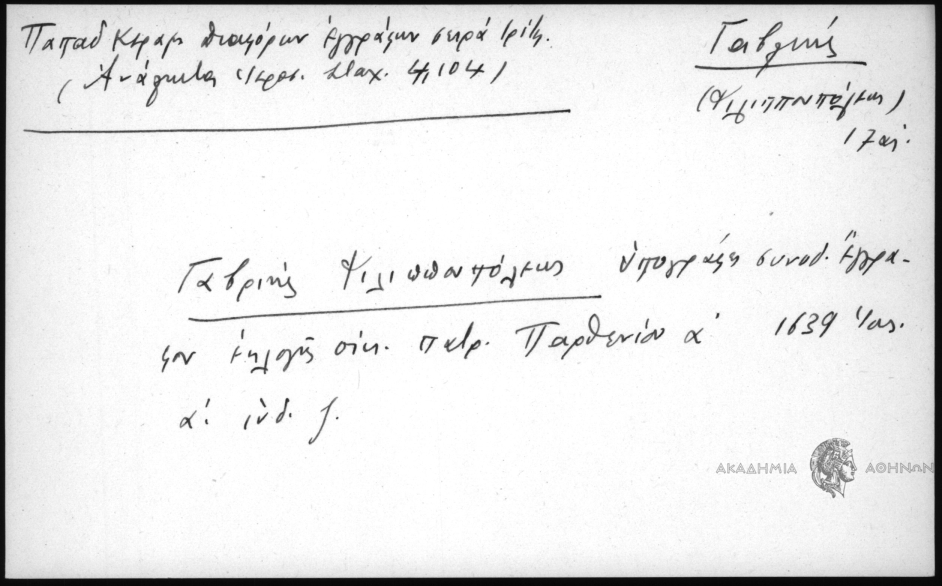 Παπαδ Κεραμ διαφόρων ἐγγράφων σειρά τρίτη.
(Ἀνάλεκτα Ἱεροσ. Σταχ. 4, 104)
Γαβριήλ
(Φιλιππουπόλεως)
17 αἰ.
Γαβριήλ Φιλιππουπόλεως ὑπογράφει συνοδ. ἔγγρα-
φον ἐκλογῆς οἰκ. πατρ. Παρθενίου α' 1639 Ἰου.
α'. ἰνδ. ζ.
ΑΚΑΔΗΜΙΑ ΑΘΗΝΩΝ